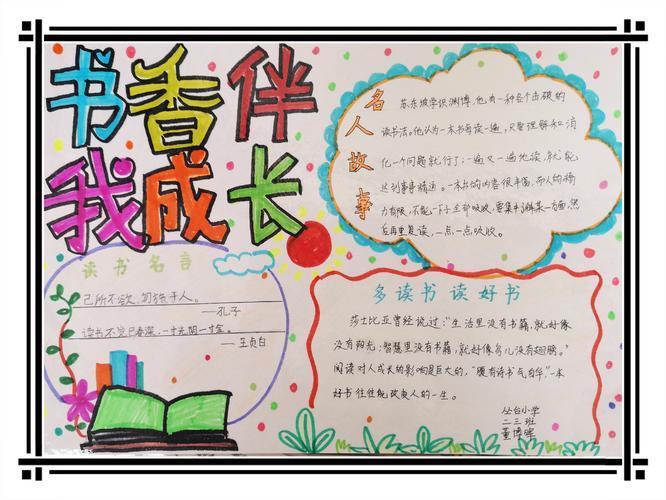 书香伴
我成长
名人故事
苏东坡学识渊博，他有一种各个击破的
读书法。他认为一本书每读一遍，只要理解和消
化一个问题就行了；一遍又一遍地读，就能
达到事事精通。一本书的内容很丰富，而人的精
力有限，不能一下子全部吸收，要集中了解某一方面，然
后再重复读，一点一点吸收。
读书名言
己所不欲，勿施于人。
——孔子
读书不觉已春深，一寸光阴一寸金。
——王贞白
多读书 读好书
莎士比亚曾经说过："生活里没有书籍，就好像
没有阳光；智慧里没有书籍，就好像鸟儿没有翅膀。"
阅读对人成长的影响是巨大的，"腹有诗书气自华"，一本
好书往往能改变人的一生。
丛台小学
二三班
董博晖